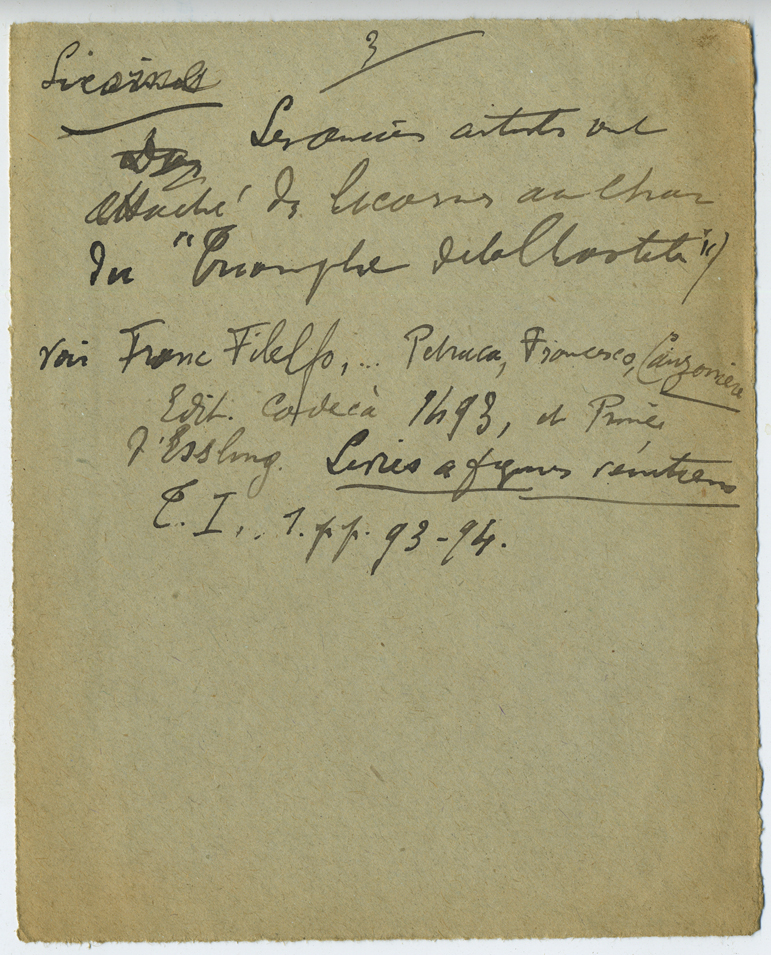 3
Licornes
Les anciens artistes ont
attaché des licornes au Char
du "Triomphe de la Chasteté")
voir Franc Filelfo, … Petraca, Francesco, Canzoniere
Edit. Codecà 1493, et Prince
d'Essling. Livres a figures vénitiens
T. I, . 1. pp. 93-94.